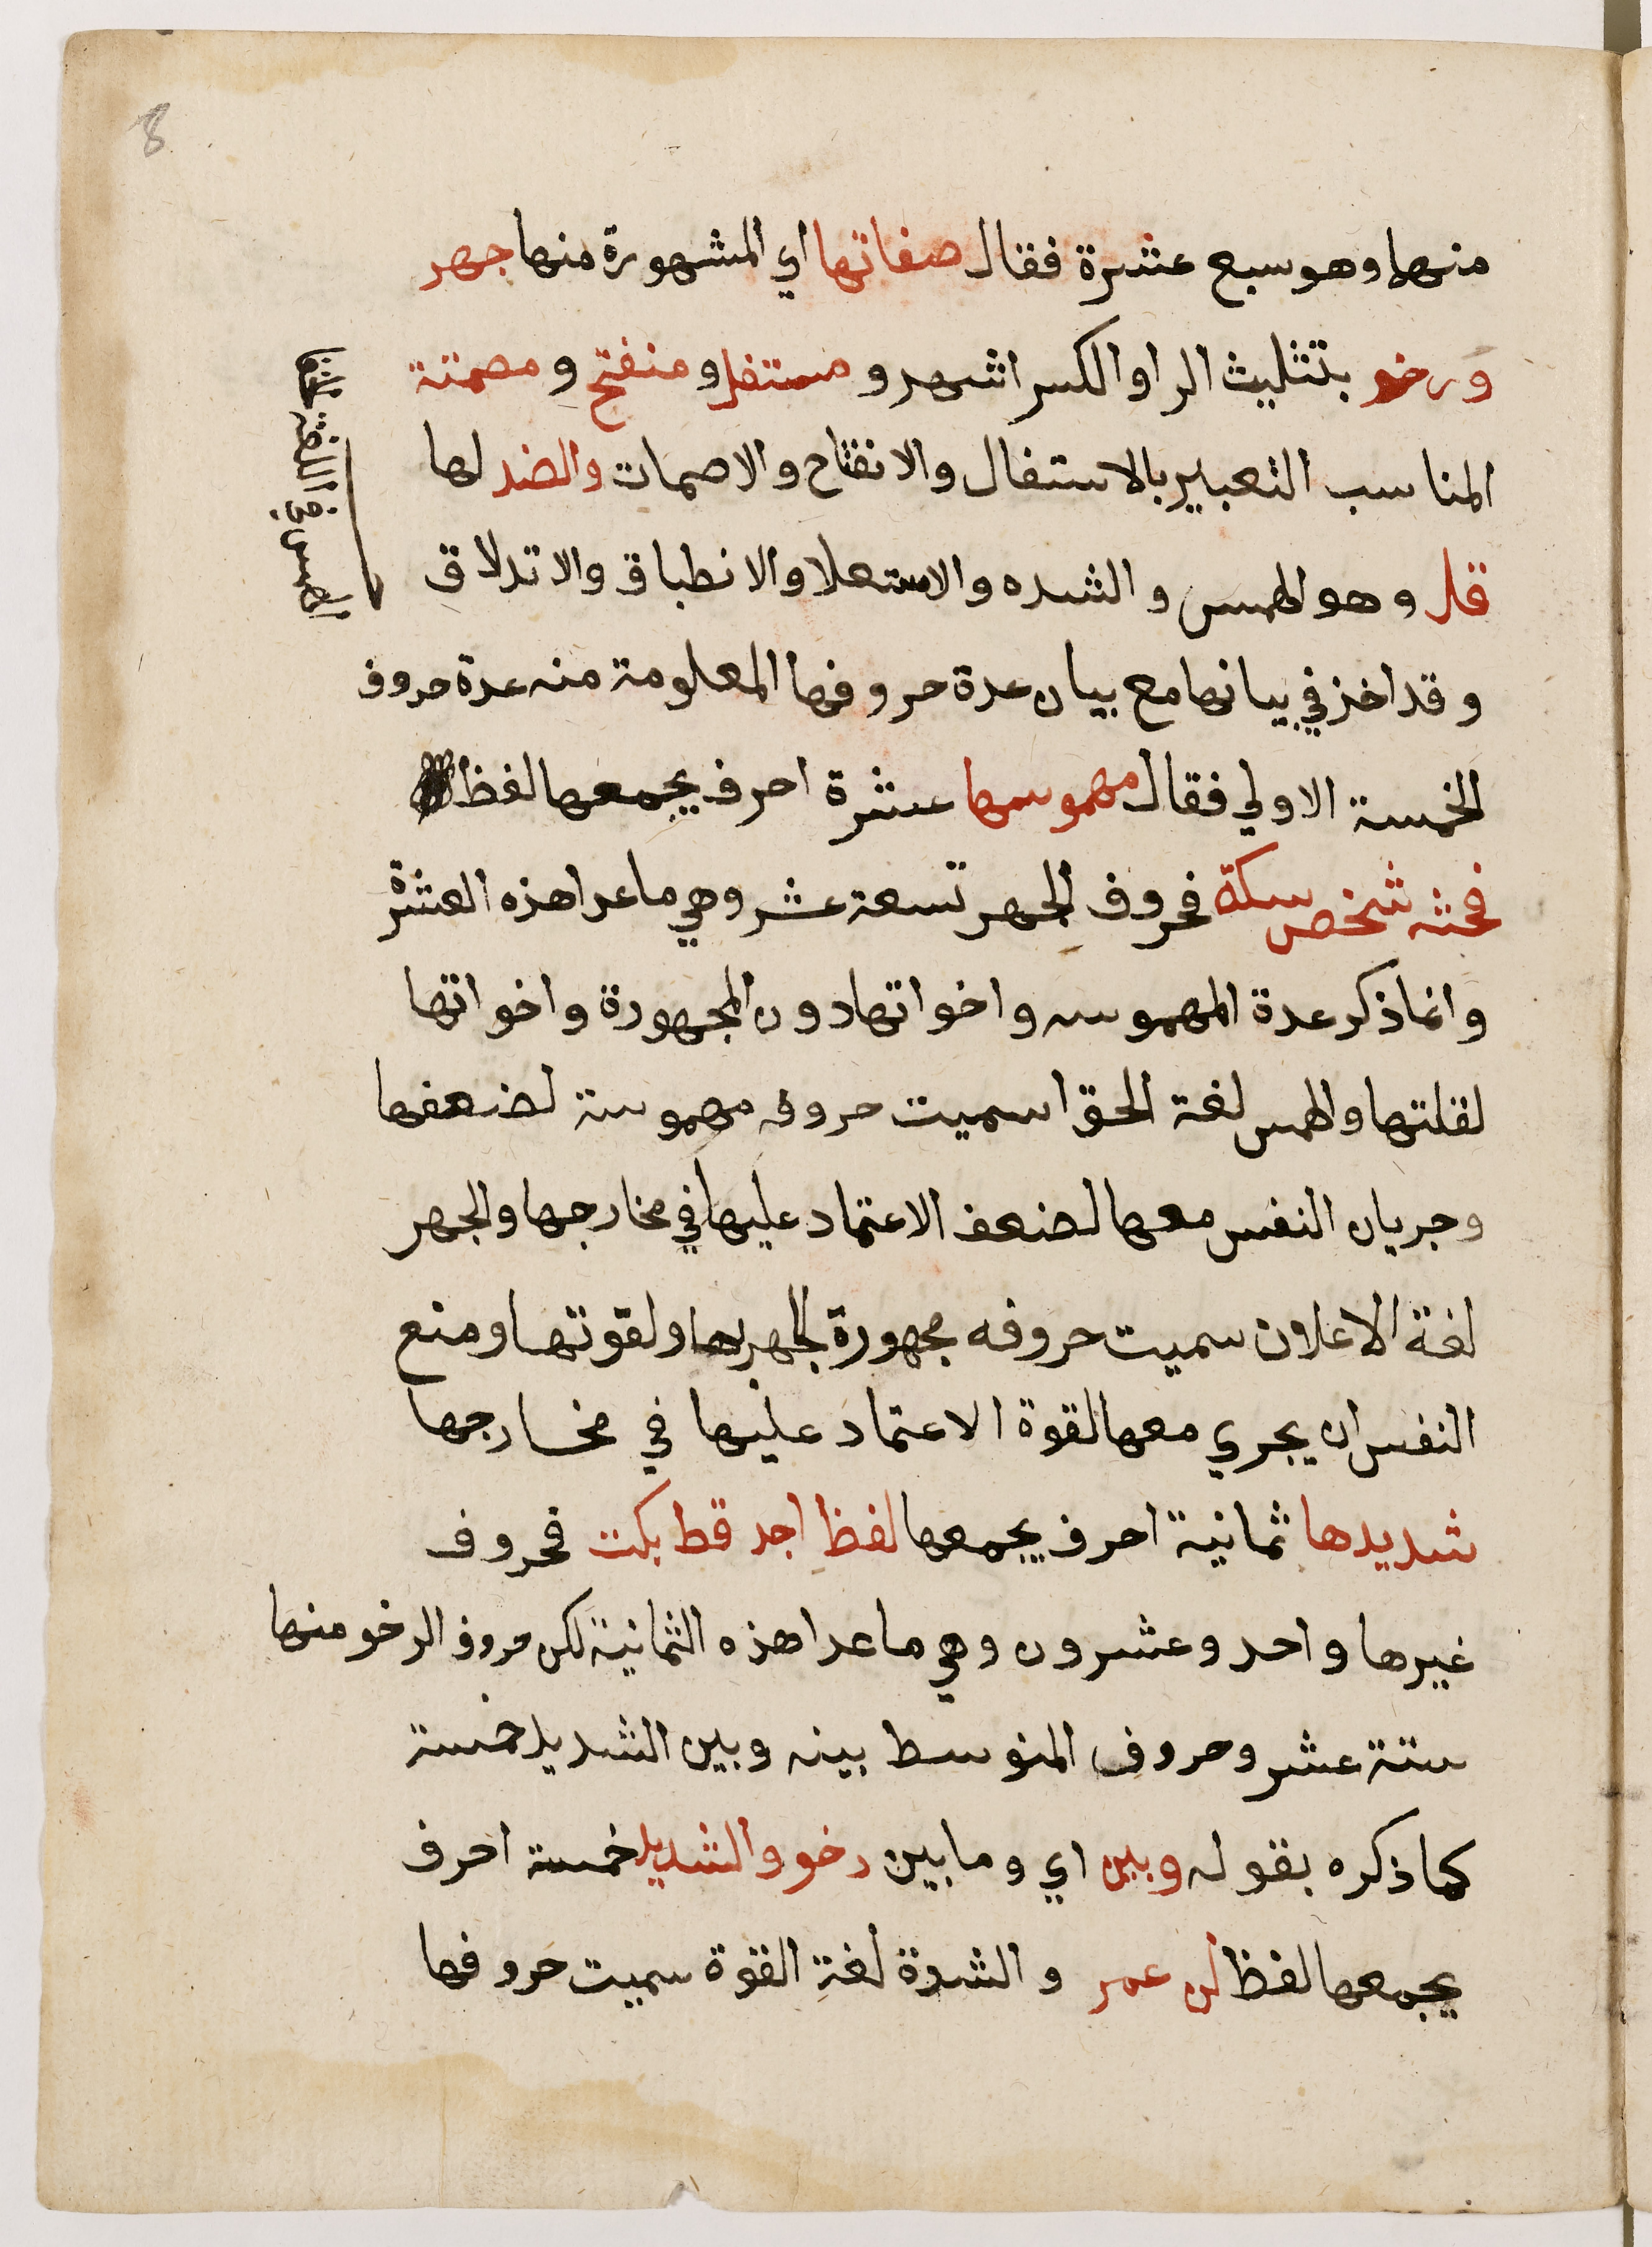 8
منها وهو سبع عشرة فقال صفاتها اي المشهورة منها جهر
ورخو بتثليث الرا والكسر اشهر و مستفل و منفتح و مصمتة
المناسب التعبير بالاستفال والانفتاح والاصمات والضد لها
قل وهو الهمس والشده والاستعلا والانطباق والاندلاق
وقد اخذ في بيانها مع بيان عدة حروفها المعلومة منه عدة حروف
الخمسة الاولي فقال مهموسها عشرة احرف يجمعها لفظ
فحثه شخص سكة فحروف الجهر تسعة عشر وهي ما عدا هذه العشرة
وانما ذكر عدة المهموسه واخواتها دون المجهورة واخواتها
لقلتها والهمس لغة الحقا سميت حروفه مهموسة لضعفها
وجريان النفس معها لضعف الاعتماد عليها في مخارجها والجهر
لغة الاعلان سميت حروفه مجهورة للجهر بها ولقوتها ومنع
النفس ان يجري معها لقوة الاعتماد عليها في مخارجها
شديدها ثمانية احرف يجمعها لفظ اجد قط بكت فحروف
غيرها واحد وعشرون وهي ما عدا هذه الثمانية لكن حروف الرخو منها
ستة عشر وحروف المتوسط بينه وبين الشديد خمسة
كما ذكره بقوله وبين اي وما بين رخو والشديد خمسة احرف
يجمعها لفظ لن عمر والشدة لغة القوة سميت حروفها
الهمس في اللغة